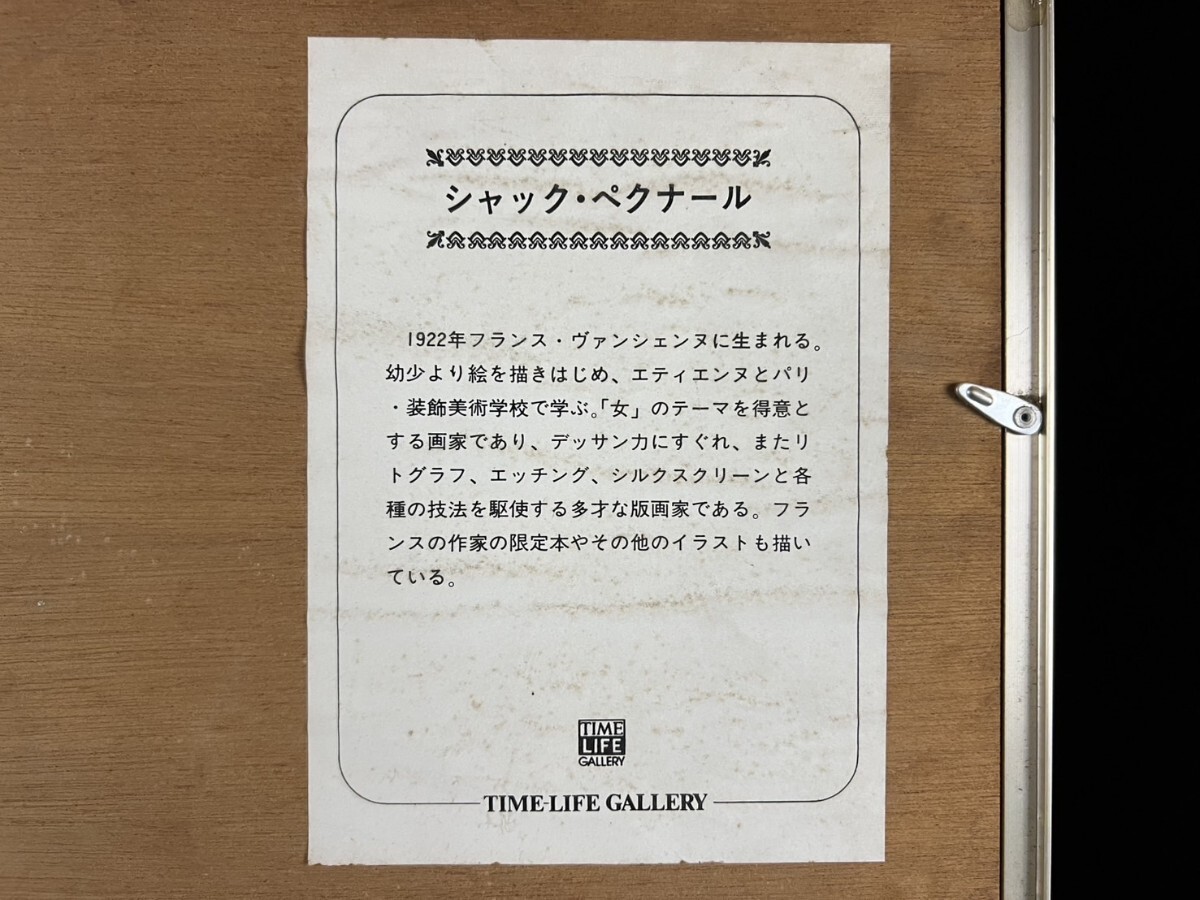 シャック・ペクナール
1922年フランス・ヴァンシェンヌに生まれる。
幼少より絵を描きはじめ、エティエンヌとパリ
・装飾美術学校で学ぶ。「女」のテーマを得意と
する画家であり、デッサン力にすぐれ、またリ
トグラフ、エッチング、シルクスクリーンと各
種の技法を駆使する多才な版画家である。フラ
ンスの作家の限定本やその他のイラストも描い
ている。
TIME
LIFE
GALLERY
TIME-LIFE GALLERY